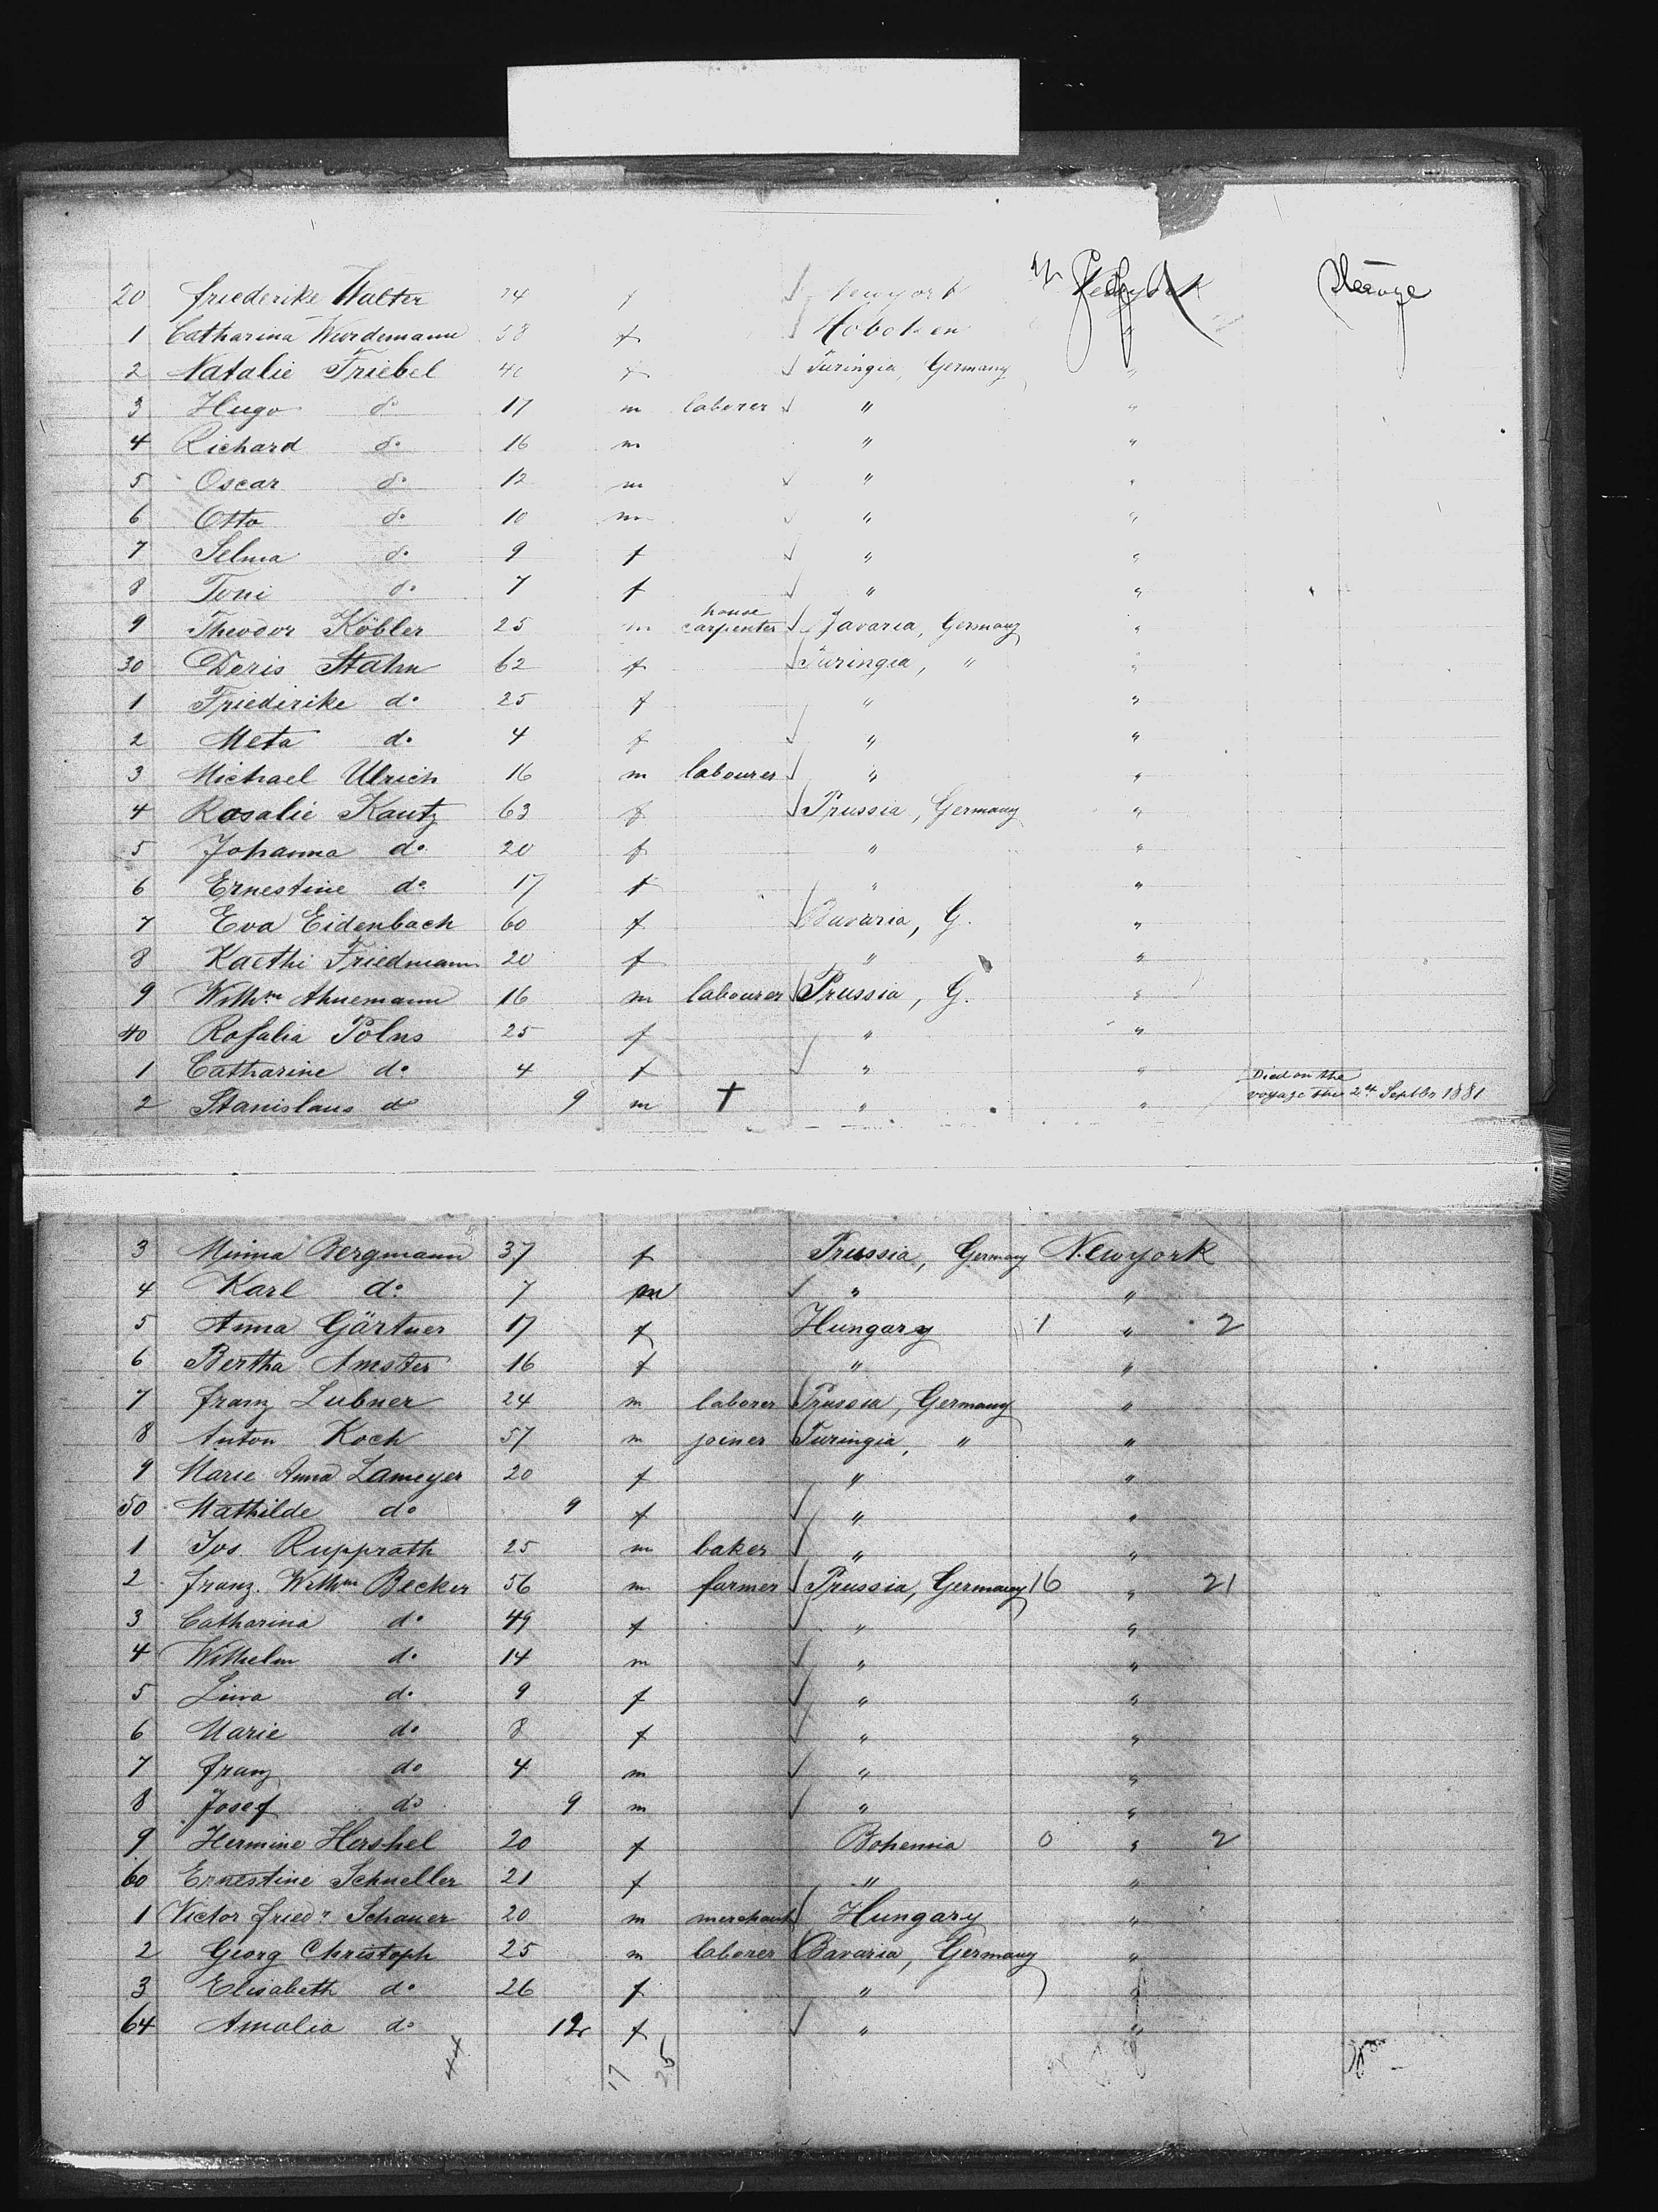 20 Friederike Walter 24 f Newyork Newyork
1 Catharina Wurdemann 58 f Hoboken "
2 Natalie Friebel 40 f Turingia, Germany "
3 Hugo do 17 m laborer " "
4 Richard do 16 m " "
5 Oscar do 12 m " "
6 Otto do 10 m " "
7 Selma do 9 f " "
8 Toni do 7 f " "
9 Theodor Köbler 25 m house carpenter Bavaria, Germany "
30 Doris Stahn 62 f Turingia, " "
1 Friederike do 25 f " "
2 Meta do 4 f " "
3 Michael Ulrich 16 m labourer " "
4 Rosalie Kautz 63 f Prussia, Germany "
5 Johanna do 20 f " "
6 Ernestine do 17 f " "
7 Eva Eidenbach 60 f Bavaria, G. "
8 Kaethi Friedmann 20 f " "
9 Willm Ahnemann 16 m labourer Prussia, G. "
40 Rosalia Polns 25 f " "
1 Catharine do 4 f " "
2 Stanislaus do 9 m † " " Died on the voyage the 2d Septbr 1881
3 Minna Bergmann 37 f Prussia, Germany Newyork
4 Karl do 7 m " "
5 Anna Gärtner 17 f Hungary 1 " 2
6 Bertha Amster 16 f " "
7 Franz Lubner 24 m laborer Prussia, Germany "
8 Anton Koch 57 m joiner Turingia, " "
9 Marie Anna Lameyer 20 f " "
50 Mathilde do 9 f " "
1 Jos. Rupprath 25 m baker " "
2 Franz. Willm Becker 56 m farmer Prussia, Germany 16 " 21
3 Catharina do 49 f " "
4 Wilhelm do 14 m " "
5 Lina do 9 f " "
6 Marie do 8 f " "
7 Franz do 4 m " "
8 Josef do 9 m " "
9 Hermine Hershel 20 f Bohemia 0 " 2
60 Ernestine Schneller 21 f " "
1 Victor Friedr Schauer 20 m merchant Hungary "
2 Georg Christoph 25 m laborer Bavaria, Germany "
3 Elisabeth do 26 f " "
64 Amalia do 12 f " "
44 17 25